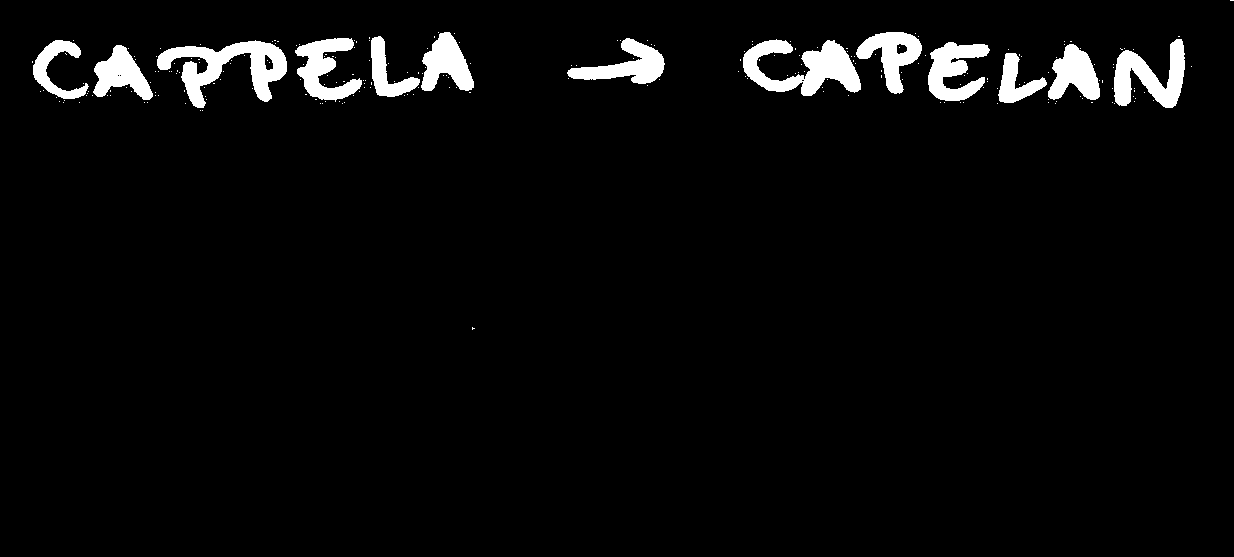 CAPPELA → CAPELAN